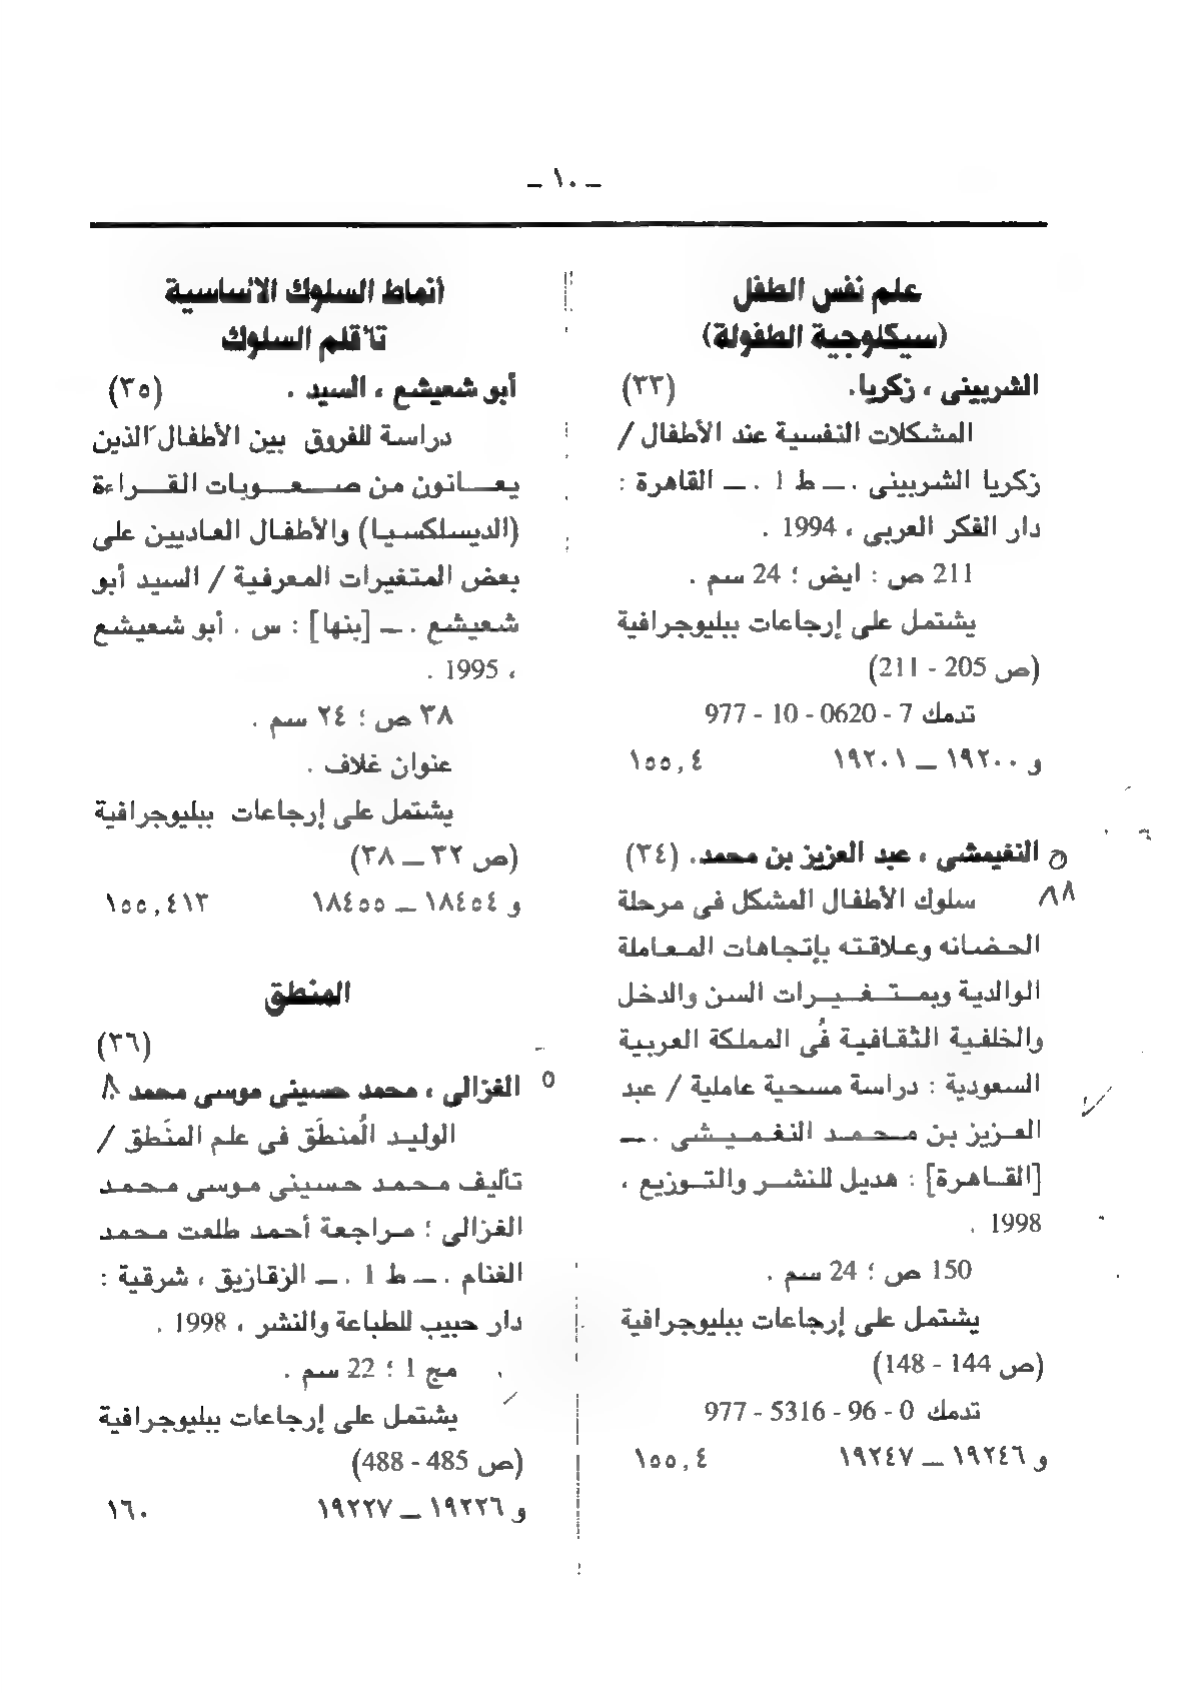 – ١٠ –
علم نفس الطفل
(سيكلوجية الطفولة)
الشربينى ، زكريا. (٣٣)
المشكلات النفسية عند الأطفال /
زكريا الشربينى . ـ ط 1 . ـ القاهرة :
دار الفكر العربى ، 1994 .
211 ص : ايض ؛ 24 سم .
يشتمل على إرجاعات ببليوجرافية
(ص 205 - 211)
تدمك 7 - 0620 - 10 - 977
و ١٩٢٠٠ ــ ١٩٢٠١ ١٥٥,٤
النغيمشى ، عبد العزيز بن محمد. (٣٤)
٨٨
سلوك الأطفال المشكل فى مرحلة
الحضانه وعلاقته بإتجاهات المعاملة
الوالدية وبمتغيرات السن والدخل
والخلفية الثقافية فُى المملكة العربية
السعودية : دراسة مسحية عاملية / عبد
العزيز بن محمد النغميشى . ـ
[القاهرة] : هديل للنشر والتوزيع ،
1998 .
150 ص ؛ 24 سم .
يشتمل على إرجاعات ببليوجرافية
(ص 144 - 148)
تدمك 0 - 96 - 5316 - 977
و ١٩٢٤٦ ــ ١٩٢٤٧ ١٥٥,٤
أنماط السلوك الأساسية
تأقلم السلوك
أبو شعيشع ، السيد . (٣٥)
دراسة للفروق بين الأطفال الذين
يعانون من صعوبات القراءة
(الديسلكسيا) والأطفال العاديين على
بعض المتغيرات المعرفية / السيد أبو
شعيشع . ـ [بنها] : س . أبو شعيشع
، 1995 .
٣٨ ص ؛ ٢٤ سم .
عنوان غلاف .
يشتمل على إرجاعات ببليوجرافية
(ص ٣٢ ــ ٣٨)
و ١٨٤٥٤ ــ ١٨٤٥٥ ١٥٥,٤١٣
المنطق
(٣٦)
الغزالى ، محمد حسينى موسى محمد
الوليد الُمنطَق فى علم المنَطق /
تأليف محمد حسينى موسى محمد
الغزالى ؛ مراجعة أحمد طلعت محمد
الغنام . ـ ط 1 . ـ الزقازيق ، شرقية :
دار حبيب للطباعة والنشر ، 1998 .
مج 1 ؛ 22 سم .
يشتمل على إرجاعات ببليوجرافية
(ص 485 - 488)
و ١٩٢٢٦ ــ ١٩٢٢٧ ١٦٠